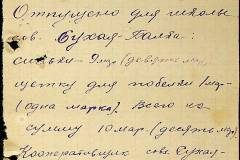 Отпущено для школы
сов. Сухая-Балта:
синьки - 9 мр. (девять мр.)
щетку для побелки 1 мр -
(одна марка). Всего на
сумму 10 мар - (десять мр)
Кооперативщик сов. Сухая-